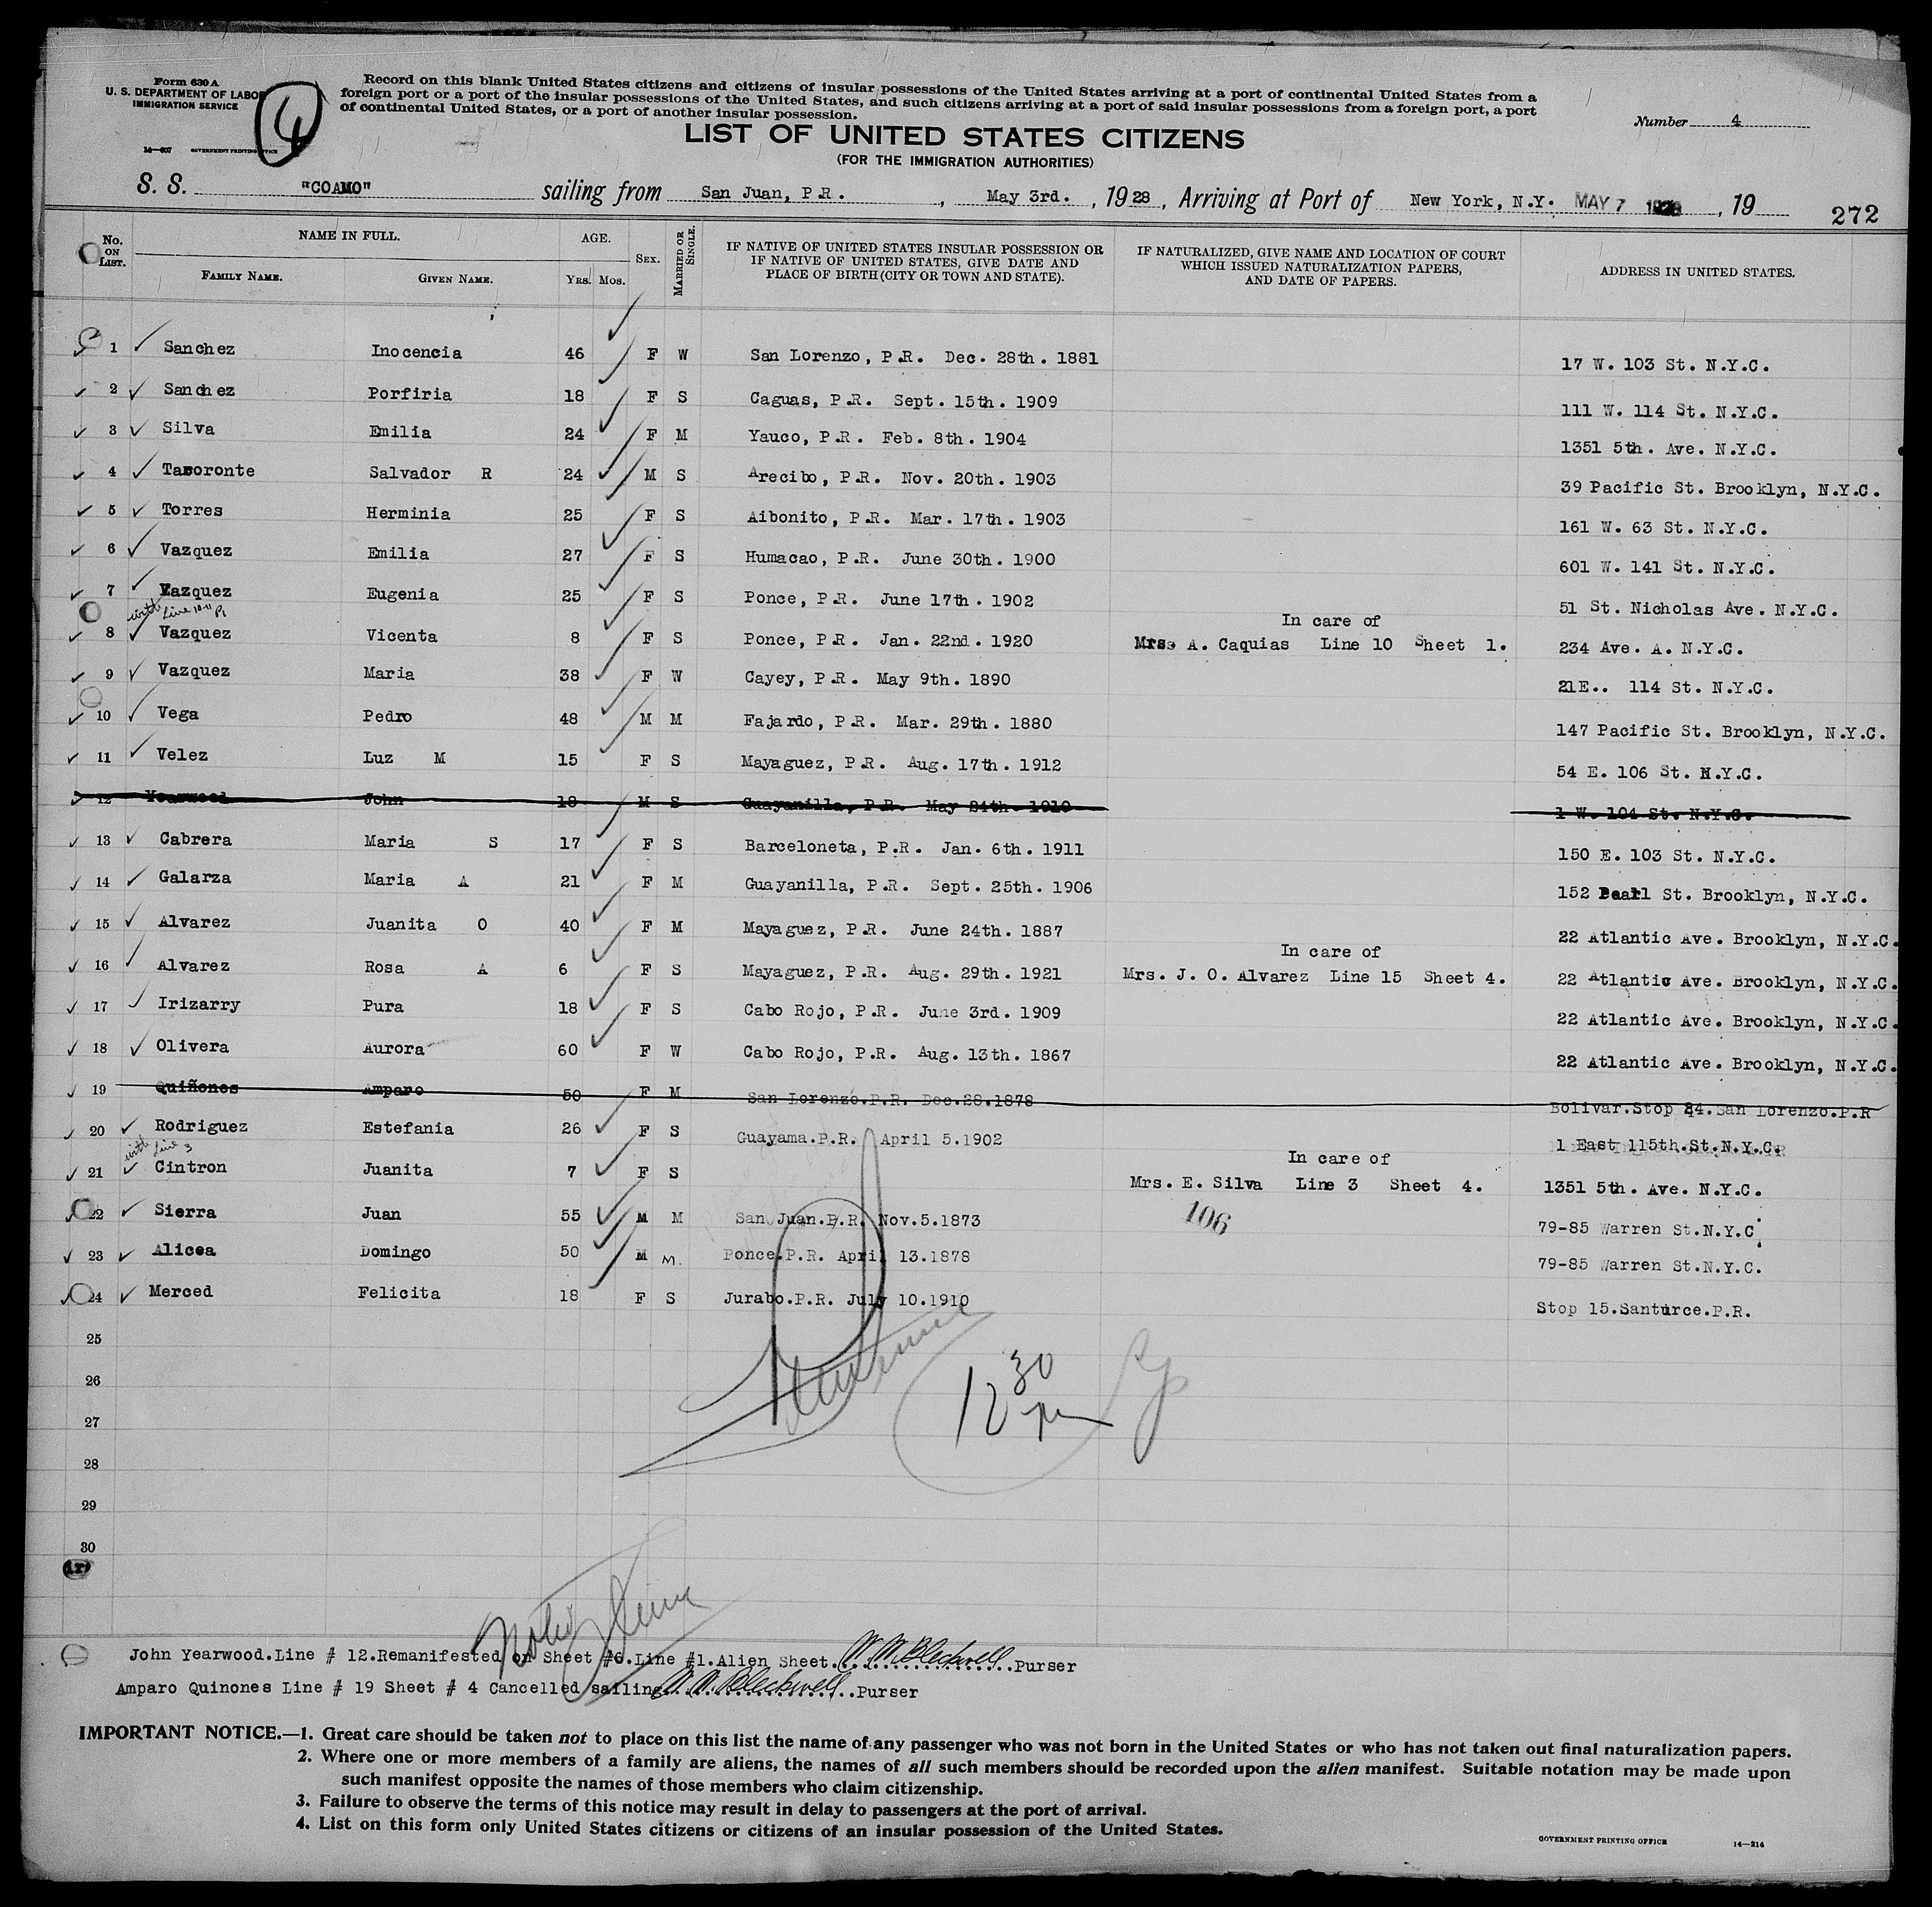 Form 630 A
U. S. DEPARTMENT OF LABOR
IMMIGRATION SERVICE
14—607 GOVERNMENT PRINTING OFFICE
4
Record on this blank United States citizens and citizens of insular possessions of the United States arriving at a port of continental United States from a
foreign port or a port of the insular possessions of the United States, and such citizens arriving at a port of said insular possessions from a foreign port, a port
of continental United States, or a port of another insular possession.
Number 4
LIST OF UNITED STATES CITIZENS
(FOR THE IMMIGRATION AUTHORITIES)
S. S. "COAMO" sailing from San Juan, P.R. , May 3rd. , 1928, Arriving at Port of New York, N.Y. MAY 7 1928 , 19
272
No. ON LIST. NAME IN FULL. FAMILY NAME. GIVEN NAME. AGE. YRS. MOS. SEX. MARRIED OR SINGLE. IF NATIVE OF UNITED STATES INSULAR POSSESSION OR IF NATIVE OF UNITED STATES, GIVE DATE AND PLACE OF BIRTH (CITY OR TOWN AND STATE). IF NATURALIZED, GIVE NAME AND LOCATION OF COURT WHICH ISSUED NATURALIZATION PAPERS, AND DATE OF PAPERS. ADDRESS IN UNITED STATES.
1 Sanchez Inocencia 46 F W San Lorenzo, P.R. Dec. 28th. 1881 17 W. 103 St. N.Y.C.
2 Sanchez Porfiria 18 F S Caguas, P.R. Sept. 15th. 1909 111 W. 114 St. N.Y.C.
3 Silva Emilia 24 F M Yauco, P.R. Feb. 8th. 1904 1351 5th. Ave. N.Y.C.
4 Tacoronte Salvador R 24 M S Arecibo, P.R. Nov. 20th. 1903 39 Pacific St. Brooklyn, N.Y.C.
5 Torres Herminia 25 F S Aibonito, P.R. Mar. 17th. 1903 161 W. 63 St. N.Y.C.
6 Vazquez Emilia 27 F S Humacao, P.R. June 30th. 1900 601 W. 141 St. N.Y.C.
7 Vazquez Eugenia 25 F S Ponce, P.R. June 17th. 1902 51 St. Nicholas Ave. N.Y.C.
with Line 10-11 P1
In care of
8 Vazquez Vicenta 8 F S Ponce, P.R. Jan. 22nd. 1920 Mrs. A. Caquias Line 10 Sheet 1. 234 Ave. A. N.Y.C.
9 Vazquez Maria 38 F W Cayey, P.R. May 9th. 1890 21E.. 114 St. N.Y.C.
10 Vega Pedro 48 M M Fajardo, P.R. Mar. 29th. 1880 147 Pacific St. Brooklyn, N.Y.C.
11 Velez Luz M 15 F S Mayaguez, P.R. Aug. 17th. 1912 54 E. 106 St. N.Y.C.
12 Yearwood John 18 M S Guayanilla, P.R. May 24th. 1910 1 W. 104 St. N.Y.C.
13 Cabrera Maria S 17 F S Barceloneta, P.R. Jan. 6th. 1911 150 E. 103 St. N.Y.C.
14 Galarza Maria A 21 F M Guayanilla, P.R. Sept. 25th. 1906 152 Pearl St. Brooklyn, N.Y.C.
15 Alvarez Juanita O 40 F M Mayaguez, P.R. June 24th. 1887 22 Atlantic Ave. Brooklyn, N.Y.C.
In care of
16 Alvarez Rosa A 6 F S Mayaguez, P.R. Aug. 29th. 1921 Mrs. J. O. Alvarez Line 15 Sheet 4. 22 Atlantic Ave. Brooklyn, N.Y.C.
17 Irizarry Pura 18 F S Cabo Rojo, P.R. June 3rd. 1909 22 Atlantic Ave. Brooklyn, N.Y.C.
18 Olivera Aurora 60 F W Cabo Rojo, P.R. Aug. 13th. 1867 22 Atlantic Ave. Brooklyn, N.Y.C.
19 Quiñones Amparo 50 F M San Lorenzo.P.R. Dec.28.1878 Bolivar.Stop 24.San Lorenzo.P.R
20 Rodriguez Estefania 26 F S Guayama.P.R. April 5.1902 1 East 115th.St.N.Y.C.
with Line 3
In care of
21 Cintron Juanita 7 F S Mrs. E. Silva Line 3 Sheet 4. 1351 5th. Ave. N.Y.C.
22 Sierra Juan 55 M M San Juan.P.R. Nov.5.1873 106 79-85 Warren St.N.Y.C.
23 Alicea Domingo 50 M M. Ponce.P.R. April 13.1878 79-85 Warren St.N.Y.C.
24 Merced Felicita 18 F S Jurabo.P.R. July 10.1910 Stop 15.Santurce.P.R.
25
26
12 30 pm
27
28
29
30
John Yearwood.Line # 12.Remanifested on Sheet #6.Line #1.Alien Sheet. Purser
Amparo Quinones Line # 19 Sheet # 4 Cancelled sailing Purser
IMPORTANT NOTICE.—1. Great care should be taken not to place on this list the name of any passenger who was not born in the United States or who has not taken out final naturalization papers.
2. Where one or more members of a family are aliens, the names of all such members should be recorded upon the alien manifest. Suitable notation may be made upon
such manifest opposite the names of those members who claim citizenship.
3. Failure to observe the terms of this notice may result in delay to passengers at the port of arrival.
4. List on this form only United States citizens or citizens of an insular possession of the United States.
GOVERNMENT PRINTING OFFICE 14—214